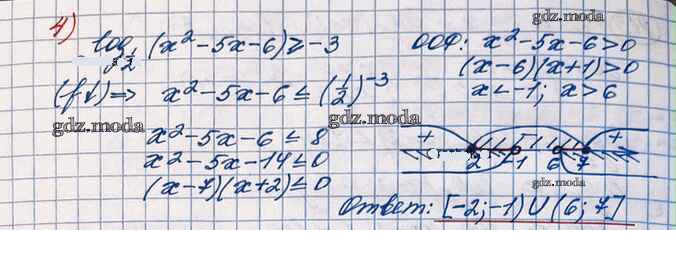 4)
log 1/2 (x² - 5x - 6) ≥ -3
(f↓) ⇒ x² - 5x - 6 ≤ (1/2)⁻³
x² - 5x - 6 ≤ 8
x² - 5x - 14 ≤ 0
(x - 7)(x + 2) ≤ 0
ООФ: x² - 5x - 6 > 0
(x - 6)(x + 1) > 0
x < -1; x > 6
+ - +
-2 -1 6 7
Ответ: [-2; -1) U (6; 7]
gdz.moda
gdz.moda
gdz.moda
gdz.moda
gdz.moda